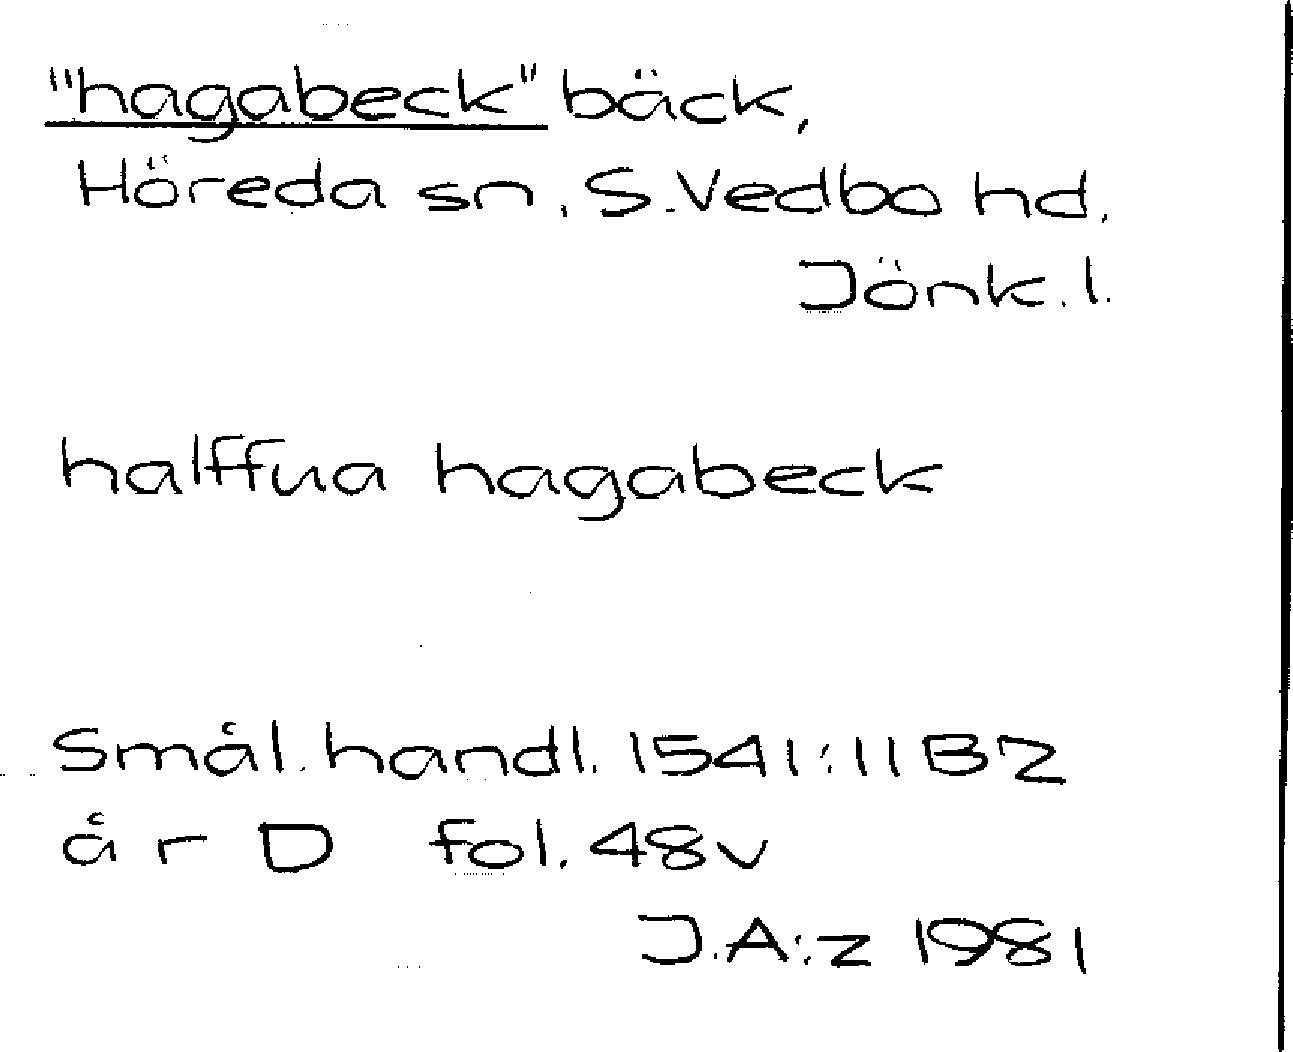 "hagabeck" bäck,
Höreda sn. S.Vedbo hd.
Jönk.l.
halffua hagabeck
Smål.handl. 1541:11 B2
år D fol.48v
J.A:z 1981